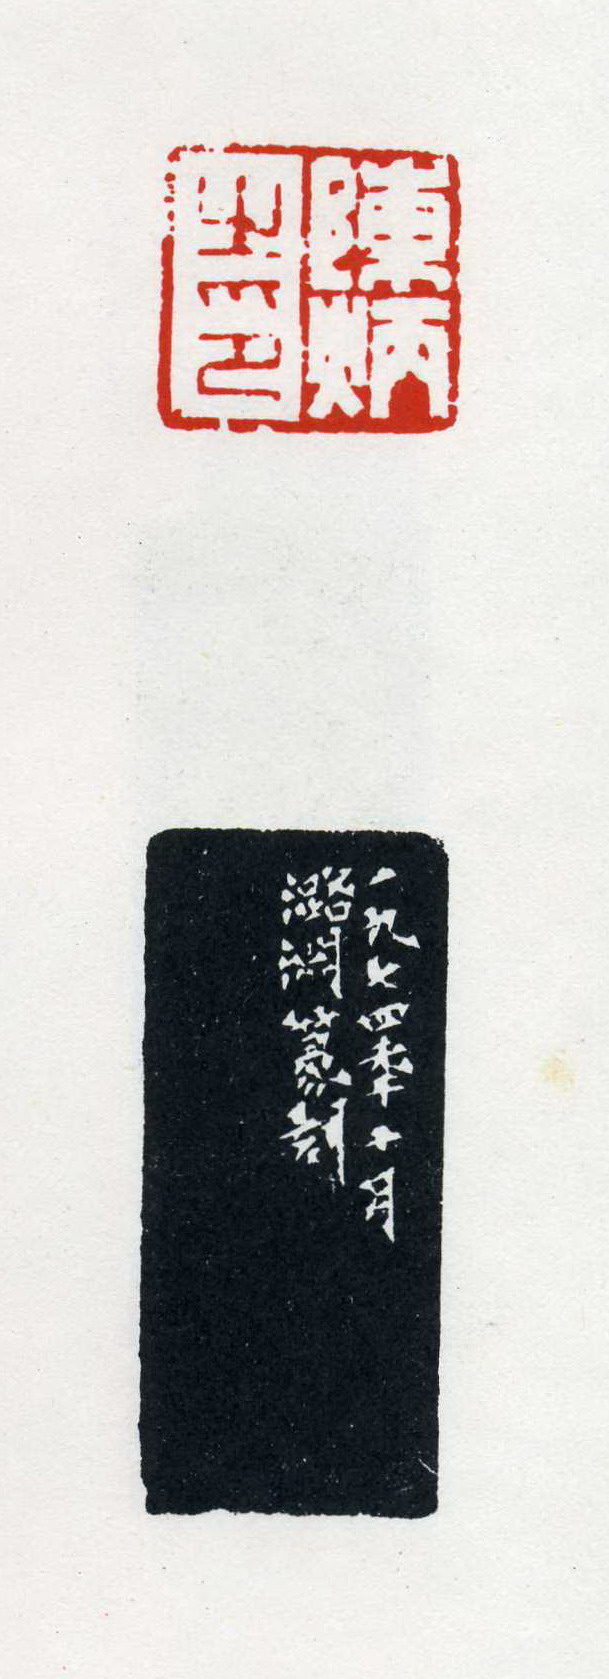 陳炳
印
一九七四年十月
潞渊篆刻